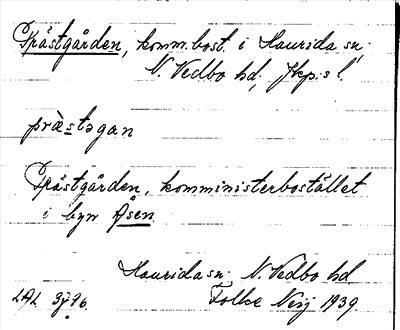 Prästgården, komm.bost. i Haurida sn.
N. Vedbo hd, Jkp:s l
præ̀stəgan
Prästgården, komministerbostället
i byn Åsen
Haurida sn. N. Vedbo hd
Folke Neij 1939.